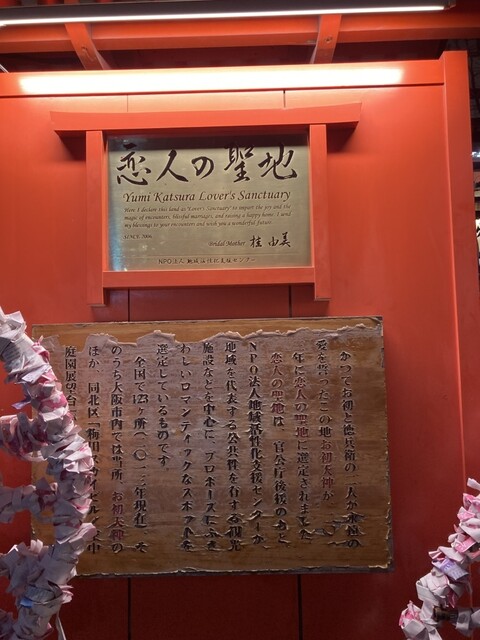 恋人の聖地
Yumi Katsura Lover's Sanctuary
Here I declare this land as "Lover's Sanctuary" to impart the joy and the
magic of encounters, blissful marriages, and raising a happy home. I send
my blessings to your encounters and wish you a wonderful future.
SINCE 2006
Bridal Mother 桂 由美
NPO法人 地域活性化支援センター
かつてお初と徳兵衛の二人が永遠の
愛を誓ったこの地お初天神が
年に恋人の聖地に選定されました
恋人の聖地は 官公庁後援のもと
NPO法人地域活性化支援センターが
地域を代表する公共性を有する観光
施設などを中心に、プロポーズにふさ
わしいロマンティックなスポットを
選定しているものです。
全国で123ヶ所(二〇一三年現在)、そ
のうち大阪市内では当所、お初天神の
ほか、同北区「梅田スカイビル 中
庭園展望台